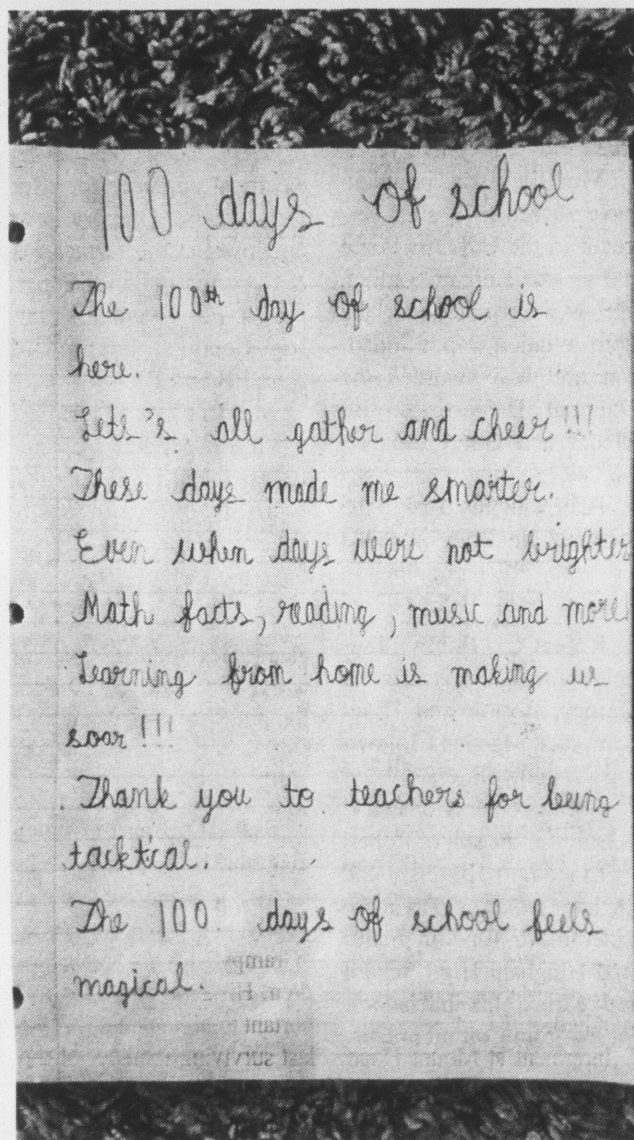 100 days of school
The 100th day of school is
here.
Lets's all gather and cheer!!!
These days made me smarter.
Even when days were not brighter
Math facts, reading, music and more
Learning from home is making us
soar!!!
Thank you to teachers for being
tacktcal.
The 100 days of school feels
magical.